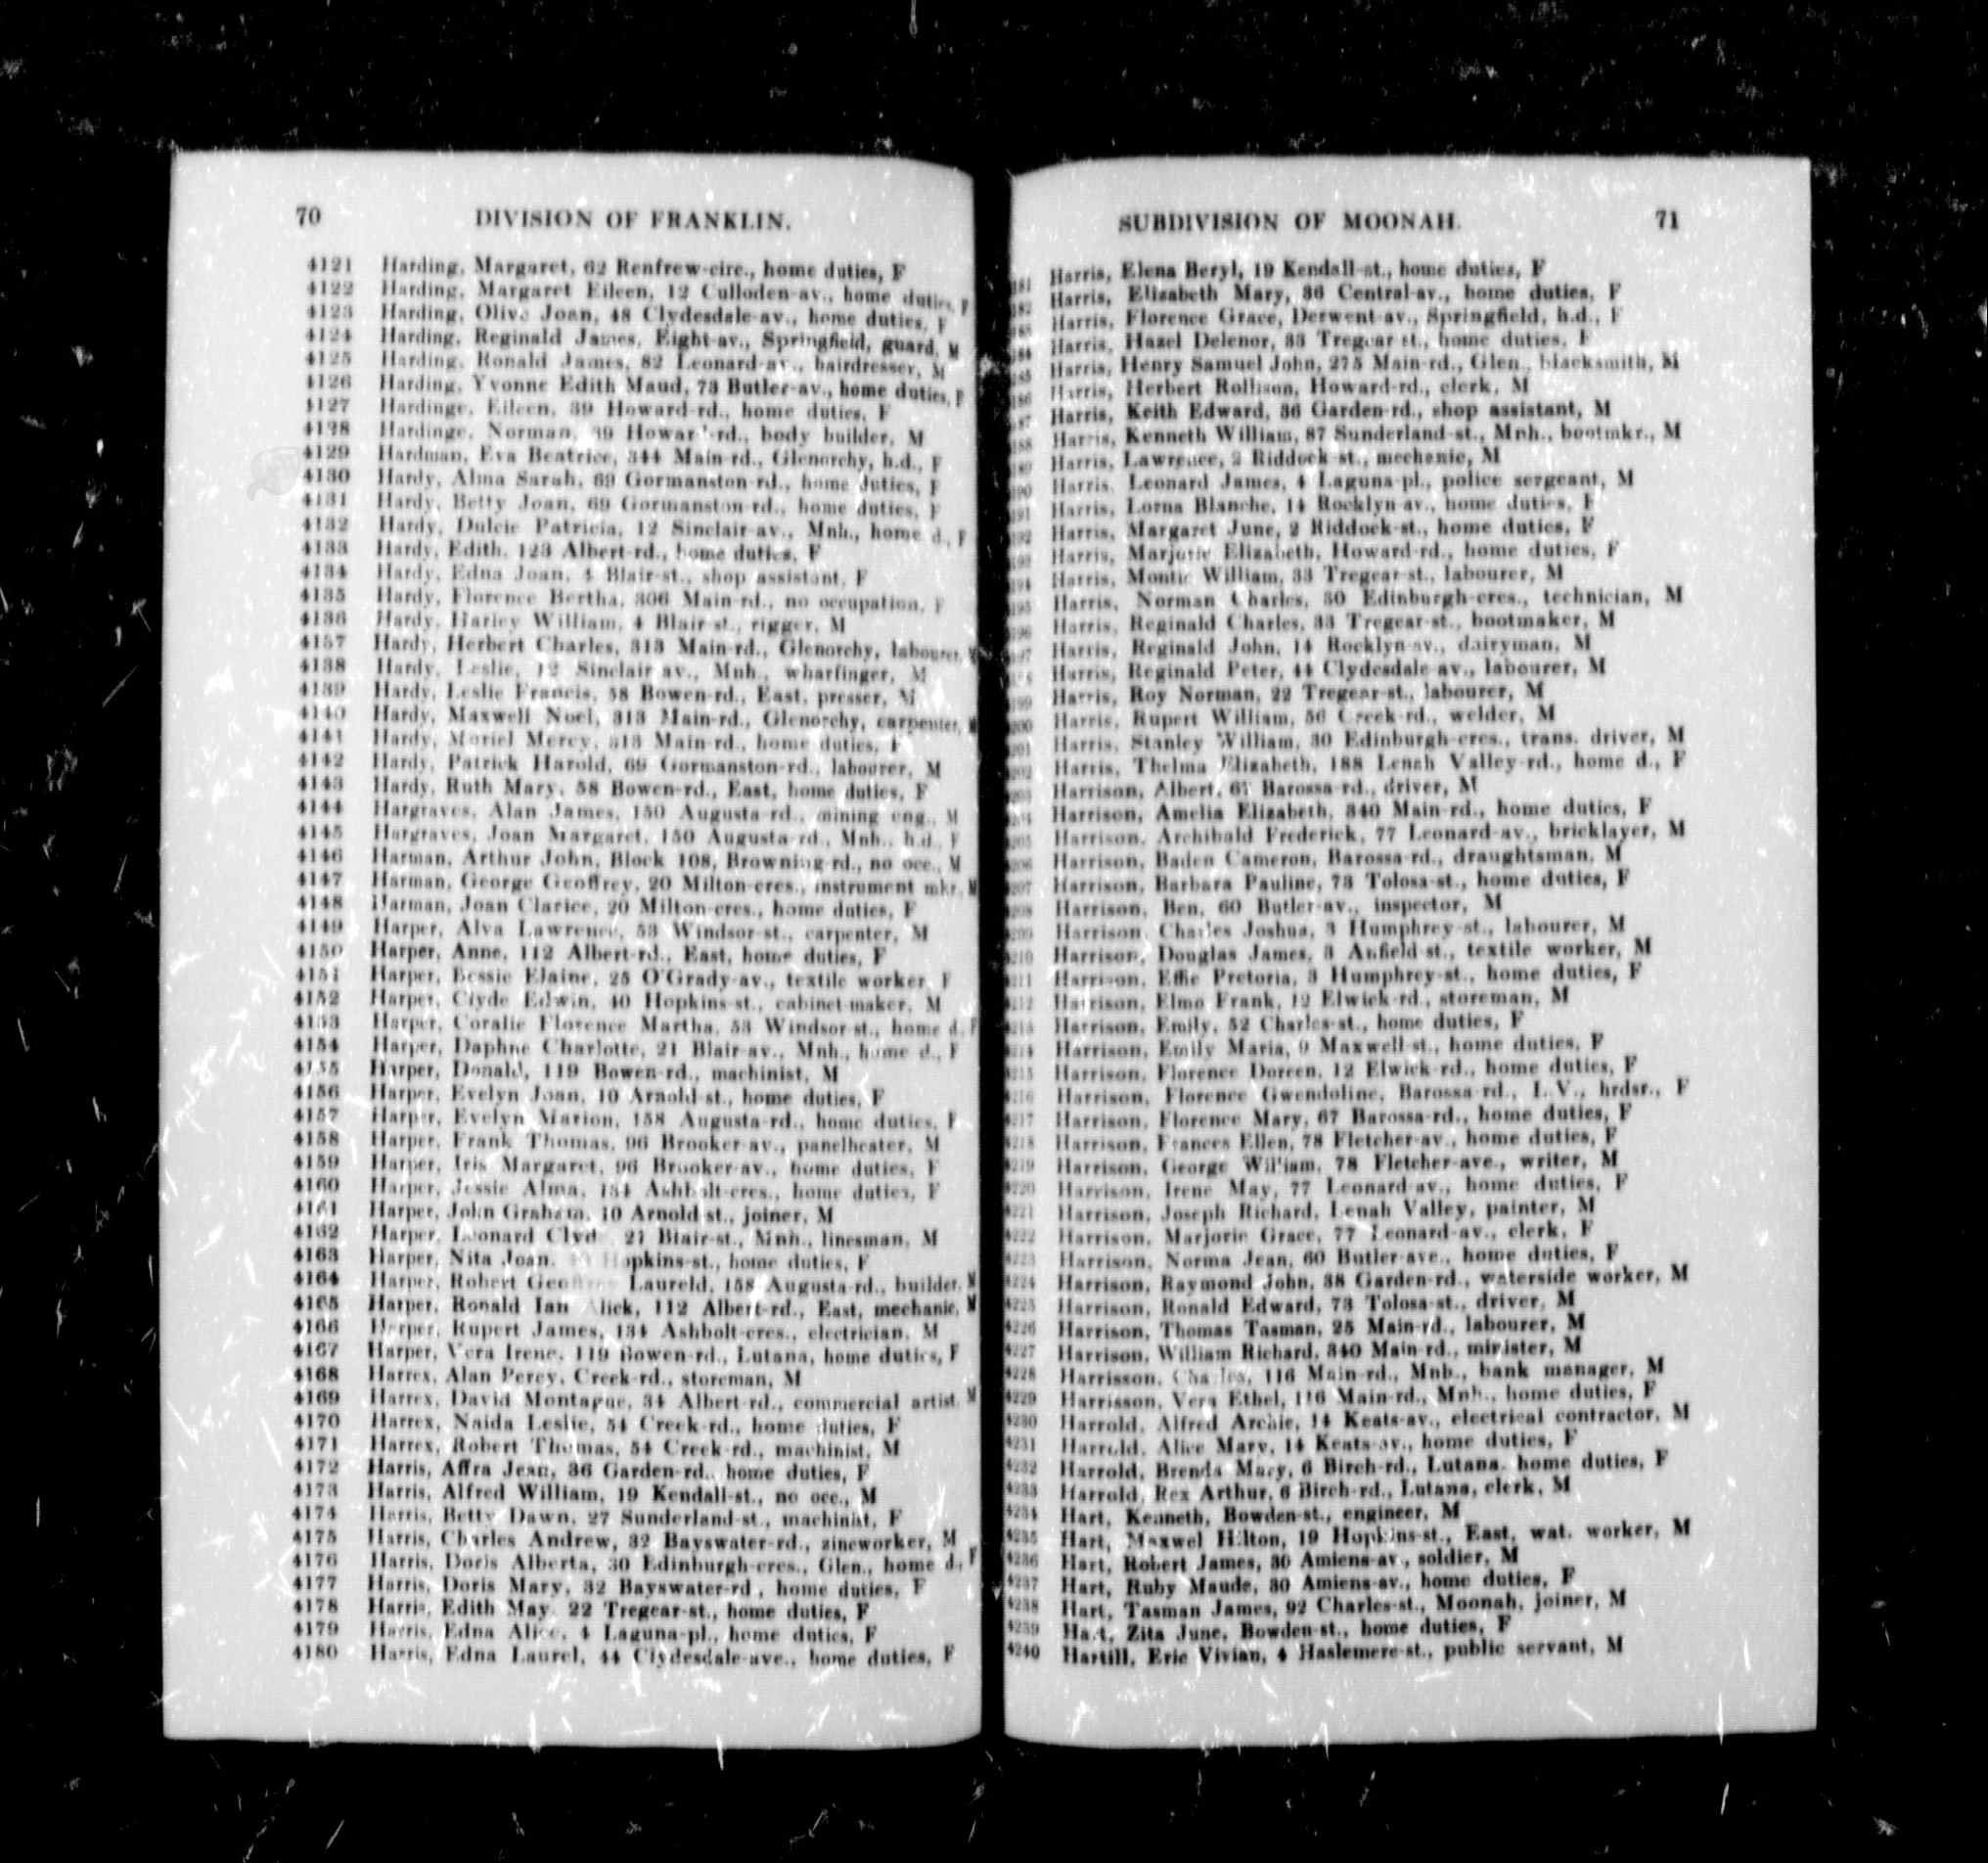 70 DIVISION OF FRANKLIN.
4121 Harding, Margaret, 62 Renfrew-circ., home duties, F
4122 Harding, Margaret Eileen, 12 Culloden-av., home duties, F
4123 Harding, Olive Joan, 48 Clydesdale-av., home duties, F
4124 Harding, Reginald James, Eight-av., Springfield, guard, M
4125 Harding, Ronald James, 82 Leonard-av., hairdresser, M
4126 Harding, Yvonne Edith Maud, 73 Butler-av., home duties, F
4127 Hardinge, Eileen, 39 Howard-rd., home duties, F
4128 Hardinge, Norman, 39 Howard-rd., body builder, M
4129 Hardman, Eva Beatrice, 344 Main-rd., Glenorchy, h.d., F
4130 Hardy, Alma Sarah, 69 Gormanston-rd., home duties, F
4131 Hardy, Betty Joan, 69 Gormanston-rd., home duties, F
4132 Hardy, Dulcie Patricia, 12 Sinclair-av., Mnh., home d., F
4133 Hardy, Edith, 123 Albert-rd., home duties, F
4134 Hardy, Edna Joan, 4 Blair-st., shop assistant, F
4135 Hardy, Florence Bertha, 306 Main-rd., no occupation, F
4136 Hardy, Harley William, 4 Blair-st., rigger, M
4137 Hardy, Herbert Charles, 313 Main-rd., Glenorchy, labourer, M
4138 Hardy, Leslie, 12 Sinclair-av., Mnh., wharfinger, M
4139 Hardy, Leslie Francis, 58 Bowen-rd., East, presser, M
4140 Hardy, Maxwell Noel, 313 Main-rd., Glenorchy, carpenter, M
4141 Hardy, Muriel Mercy, 313 Main-rd., home duties, F
4142 Hardy, Patrick Harold, 69 Gormanston-rd., labourer, M
4143 Hardy, Ruth Mary, 58 Bowen-rd., East, home duties, F
4144 Hargraves, Alan James, 150 Augusta-rd., mining eng., M
4145 Hargraves, Joan Margaret, 150 Augusta-rd., Mnh., h.d., F
4146 Harman, Arthur John, Block 108, Browning-rd., no occ., M
4147 Harman, George Geoffrey, 20 Milton-cres., instrument mkr., M
4148 Harman, Joan Clarice, 20 Milton-cres., home duties, F
4149 Harper, Alva Lawrence, 53 Windsor-st., carpenter, M
4150 Harper, Anne, 112 Albert-rd., East, home duties, F
4151 Harper, Bessie Elaine, 25 O'Grady-av., textile worker, F
4152 Harper, Clyde Edwin, 40 Hopkins-st., cabinet-maker, M
4153 Harper, Coralie Florence Martha, 53 Windsor-st., home d., F
4154 Harper, Daphne Charlotte, 21 Blair-av., Mnh., home d., F
4155 Harper, Donald, 119 Bowen-rd., machinist, M
4156 Harper, Evelyn Joan, 10 Arnold-st., home duties, F
4157 Harper, Evelyn Marion, 158 Augusta-rd., home duties, F
4158 Harper, Frank Thomas, 96 Brooker-av., panelbeater, M
4159 Harper, Iris Margaret, 96 Brooker-av., home duties, F
4160 Harper, Jessie Alma, 134 Ashbolt-cres., home duties, F
4161 Harper, John Graham, 10 Arnold-st., joiner, M
4162 Harper, Leonard Clyd 21 Blair-st., Mnh., linesman, M
4163 Harper, Nita Joan, Hopkins-st., home duties, F
4164 Harper, Robert Geoffrey Laureld, 158 Augusta-rd., builder, M
4165 Harper, Ronald Ian Alick, 112 Albert-rd., East, mechanic, M
4166 Harper, Rupert James, 134 Ashbolt-cres., electrician, M
4167 Harper, Vera Irene, 119 Bowen-rd., Lutana, home duties, F
4168 Harrex, Alan Percy, Creek-rd., storeman, M
4169 Harrex, David Montague, 34 Albert-rd., commercial artist, M
4170 Harrex, Naida Leslie, 54 Creek-rd., home duties, F
4171 Harrex, Robert Thomas, 54 Creek-rd., machinist, M
4172 Harris, Affra Jean, 36 Garden-rd., home duties, F
4173 Harris, Alfred William, 19 Kendall-st., no occ., M
4174 Harris, Betty Dawn, 27 Sunderland-st., machinist, F
4175 Harris, Charles Andrew, 32 Bayswater-rd., zincworker, M
4176 Harris, Doris Alberta, 30 Edinburgh-cres., Glen., home d., F
4177 Harris, Doris Mary, 32 Bayswater-rd., home duties, F
4178 Harris, Edith May, 22 Tregear-st., home duties, F
4179 Harris, Edna Alice, 4 Laguna-pl., home duties, F
4180 Harris, Edna Laurel, 44 Clydesdale-ave., home duties, F
SUBDIVISION OF MOONAH. 71
181 Harris, Elena Beryl, 19 Kendall-st., home duties, F
182 Harris, Elizabeth Mary, 36 Central-av., home duties, F
183 Harris, Florence Grace, Derwent-av., Springfield, h.d., F
184 Harris, Hazel Delenor, 33 Tregear-st., home duties, F
185 Harris, Henry Samuel John, 275 Main-rd., Glen., blacksmith, M
186 Harris, Herbert Rollison, Howard-rd., clerk, M
187 Harris, Keith Edward, 36 Garden-rd., shop assistant, M
188 Harris, Kenneth William, 87 Sunderland-st., Mnh., bootmkr., M
189 Harris, Lawrence, 2 Riddock-st., mechanic, M
190 Harris, Leonard James, 4 Laguna-pl., police sergeant, M
191 Harris, Lorna Blanche, 14 Rocklyn-av., home duties, F
192 Harris, Margaret June, 2 Riddock-st., home duties, F
193 Harris, Marjorie Elizabeth, Howard-rd., home duties, F
194 Harris, Montie William, 33 Tregear-st., labourer, M
195 Harris, Norman Charles, 30 Edinburgh-cres., technician, M
196 Harris, Reginald Charles, 33 Tregear-st., bootmaker, M
197 Harris, Reginald John, 14 Rocklyn-av., dairyman, M
Harris, Reginald Peter, 44 Clydesdale-av., labourer, M
199 Harris, Roy Norman, 22 Tregear-st., labourer, M
200 Harris, Rupert William, 56 Creek-rd., welder, M
201 Harris, Stanley William, 30 Edinburgh-cres., trans. driver, M
202 Harris, Thelma Elizabeth, 188 Lenah Valley-rd., home d., F
203 Harrison, Albert, 67 Barossa-rd., driver, M
204 Harrison, Amelia Elizabeth, 340 Main-rd., home duties, F
205 Harrison, Archibald Frederick, 77 Leonard-av., bricklayer, M
206 Harrison, Baden Cameron, Barossa-rd., draughtsman, M
207 Harrison, Barbara Pauline, 73 Tolosa-st., home duties, F
208 Harrison, Ben, 60 Butler-av., inspector, M
209 Harrison, Charles Joshua, 3 Humphrey-st., labourer, M
4210 Harrison, Douglas James, 3 Anfield-st., textile worker, M
4211 Harrison, Effie Pretoria, 3 Humphrey-st., home duties, F
4212 Harrison, Elmo Frank, 12 Elwick-rd., storeman, M
4213 Harrison, Emily, 52 Charles-st., home duties, F
4214 Harrison, Emily Maria, 9 Maxwell-st., home duties, F
4215 Harrison, Florence Doreen, 12 Elwick-rd., home duties, F
4216 Harrison, Florence Gwendoline, Barossa-rd., L.V., hrdsr., F
4217 Harrison, Florence Mary, 67 Barossa-rd., home duties, F
4218 Harrison, Frances Ellen, 78 Fletcher-av., home duties, F
4219 Harrison, George William, 78 Fletcher-ave., writer, M
4220 Harrison, Irene May, 77 Leonard-av., home duties, F
4221 Harrison, Joseph Richard, Lenah Valley, painter, M
4222 Harrison, Marjorie Grace, 77 Leonard-av., clerk, F
4223 Harrison, Norma Jean, 60 Butler-ave., home duties, F
4224 Harrison, Raymond John, 38 Garden-rd., waterside worker, M
4225 Harrison, Ronald Edward, 73 Tolosa-st., driver, M
4226 Harrison, Thomas Tasman, 25 Main-rd., labourer, M
4227 Harrison, William Richard, 340 Main-rd., minister, M
4228 Harrisson, Charles, 116 Main-rd., Mnh., bank manager, M
4229 Harrisson, Vera Ethel, 116 Main-rd., Mnh., home duties, F
4230 Harrold, Alfred Archie, 14 Keats-av., electrical contractor, M
4231 Harrold, Alice Mary, 14 Keats-av., home duties, F
4232 Harrold, Brenda Mary, 6 Birch-rd., Lutana, home duties, F
4233 Harrold, Rex Arthur, 6 Birch-rd., Lutana, clerk, M
4234 Hart, Kenneth, Bowden-st., engineer, M
4235 Hart, Maxwel Hilton, 19 Hopkins-st., East, wat. worker, M
4236 Hart, Robert James, 30 Amiens-av., soldier, M
4237 Hart, Ruby Maude, 30 Amiens-av., home duties, F
4238 Hart, Tasman James, 92 Charles-st., Moonah, joiner, M
4239 Hart, Zita June, Bowden-st., home duties, F
4240 Hartill, Eric Vivian, 4 Haslemere-st., public servant, M